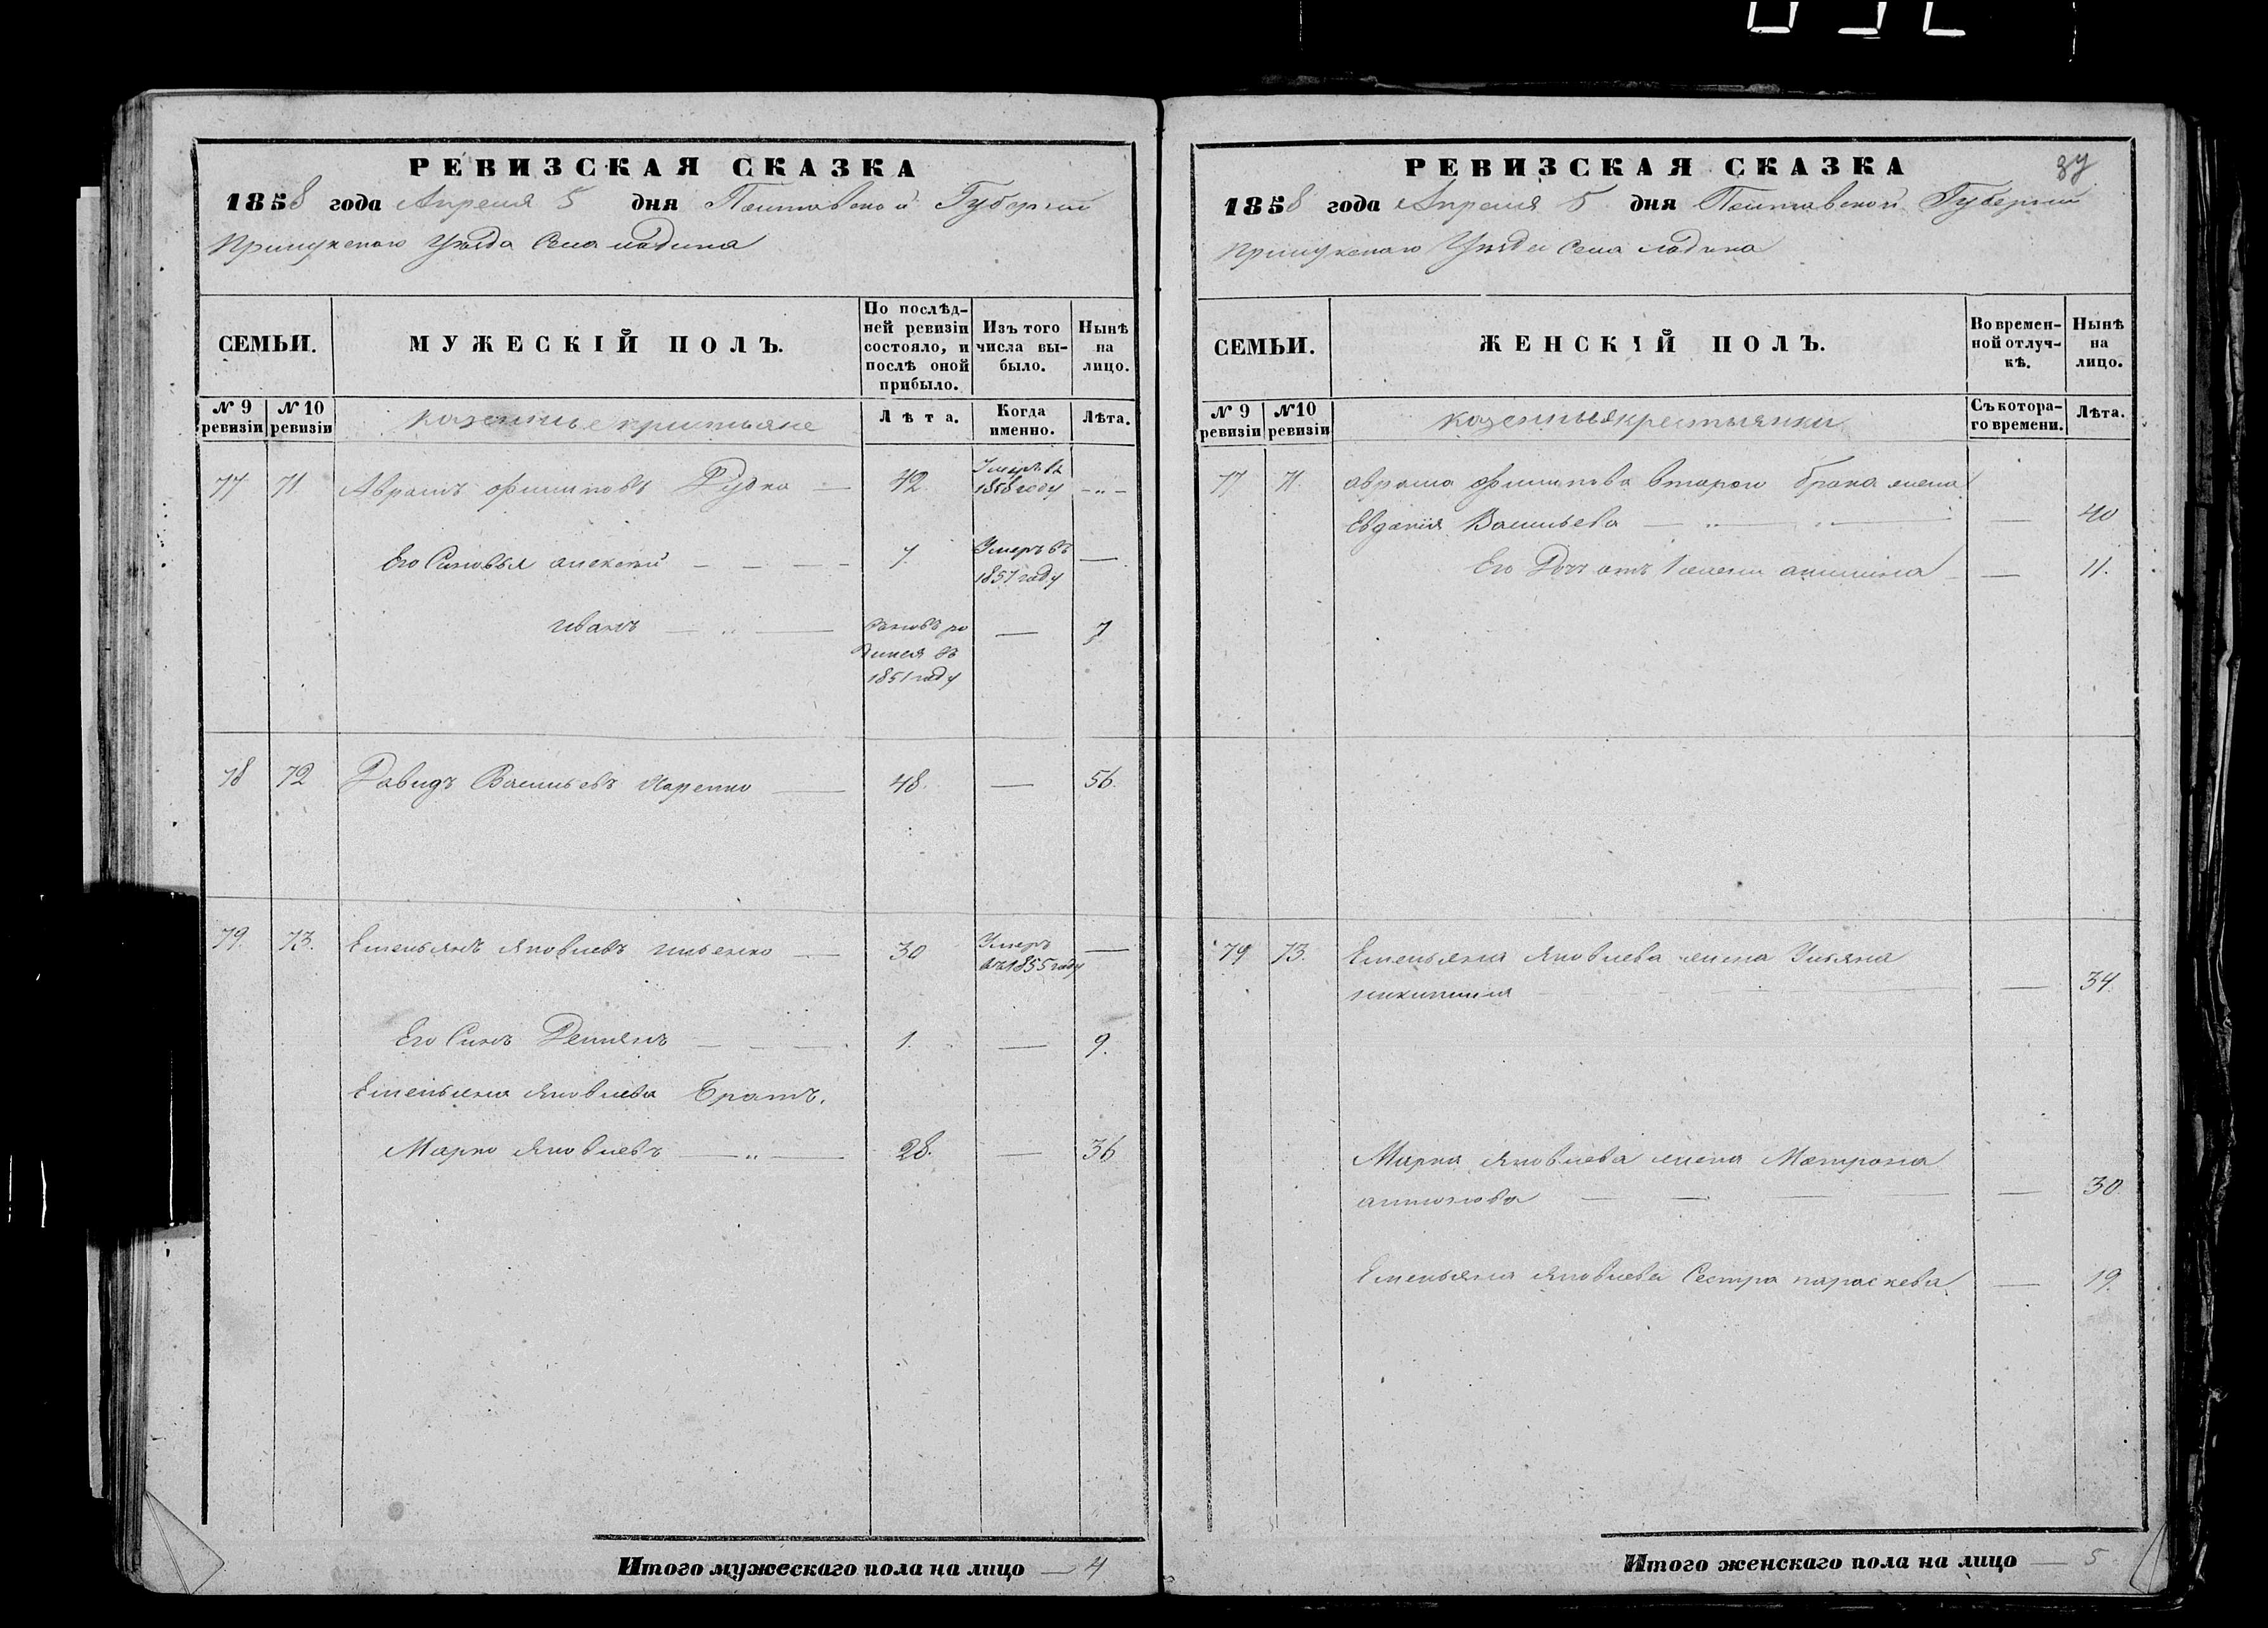 РЕВИЗСКАЯ СКАЗКА
1858 года Апреля 5 дня Полтавской Губернии
Прилукскаго Уѣзда Села Ладина
СЕМЬИ.
МУЖЕСКІЙ ПОЛЪ.
По послѣд-
ней ревизіи
состояло, и
послѣ оной
прибыло.
Изъ того
числа вы-
было.
Нынѣ
на
лицо.
№ 9
ревизіи
№ 10
ревизіи
казенные крестьяне
Лѣта.
Когда
именно.
Лѣта.
77 71 Аврамъ Филиповъ Рудка — 42 Умеръ въ
1858 году — „ —
Его Сыновья алексей — — — — 7. Умеръ въ
1857 году —
иванъ — „ — вновь ро
дился въ
1851 году — 7
78 72 Давидъ Васильевъ — 48. — 56.
79. 73. Емельянъ Яковлевъ — 30 Умеръ
въ 1855 году —
Его Сынъ Демьянъ — — — 1. — 9.
Емельяна Яковлева Братъ.
Марко Яковлевъ — „ — 28. — 36
Итого мужескаго пола на лицо — 4
РЕВИЗСКАЯ СКАЗКА
1858 года Апреля 5 дня Полтавской Губернии
Прилукскаго Уѣзда Села Ладина
СЕМЬИ.
ЖЕНСКІЙ ПОЛЪ.
Во времен-
ной отлуч-
кѣ.
Нынѣ
на
лицо.
№ 9
ревизіи
№ 10
ревизіи
казенныя крестьянки
Съ котора-
го времени.
Лѣта.
77 71. аврама Филипова втораго брака жена
Евдокія Васильева — „ „ — — 40
Его Доч отъ 1 жены — — 11.
79 73. Емельяна Яковлева жена Ульяна
— — 34.
Марка Яковлева жена Матрона
антонова — — — — 30.
Емельяна Яковлева Сестра параскева — 19.
Итого женскаго пола на лицо — 5